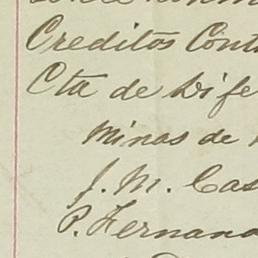 Creditos Cont
Cta de Dife
Minas de
J. M. Cas
P. Fernand